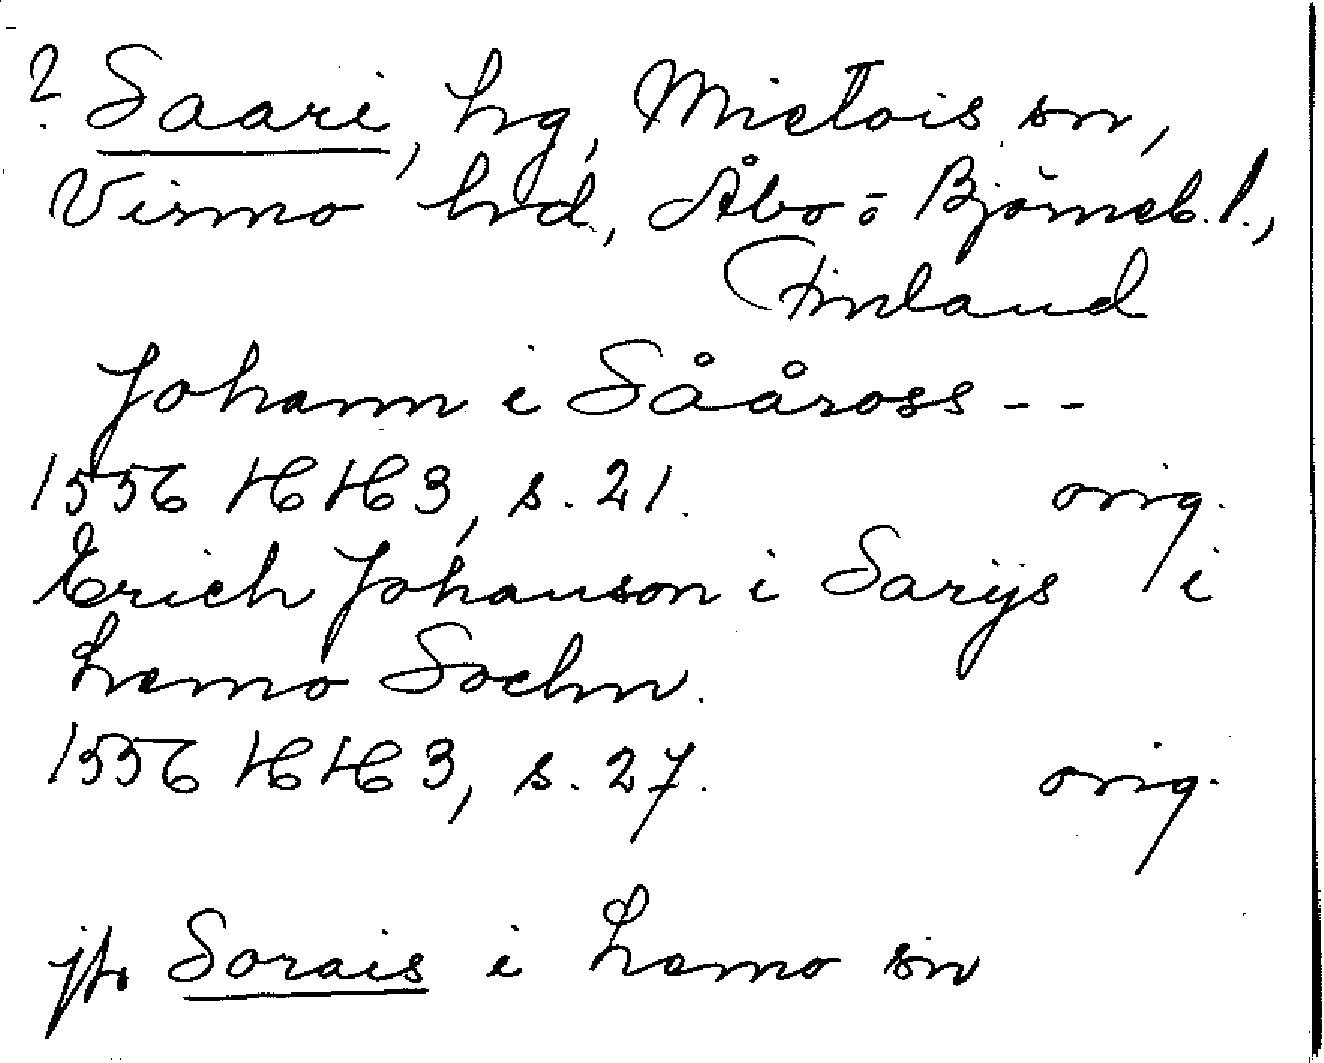 ? Saari, hg, Mietois sn,
Virmo hrd., Åbo = Björneb. l.,
Finland
Johann i Sååross - -
1556 HH3, s. 21. orig.
Erich Johanson i Sarijs i
Lemo Sochn.
1556 HH3, s. 27. orig.
jfr Sorais i Lemo sn